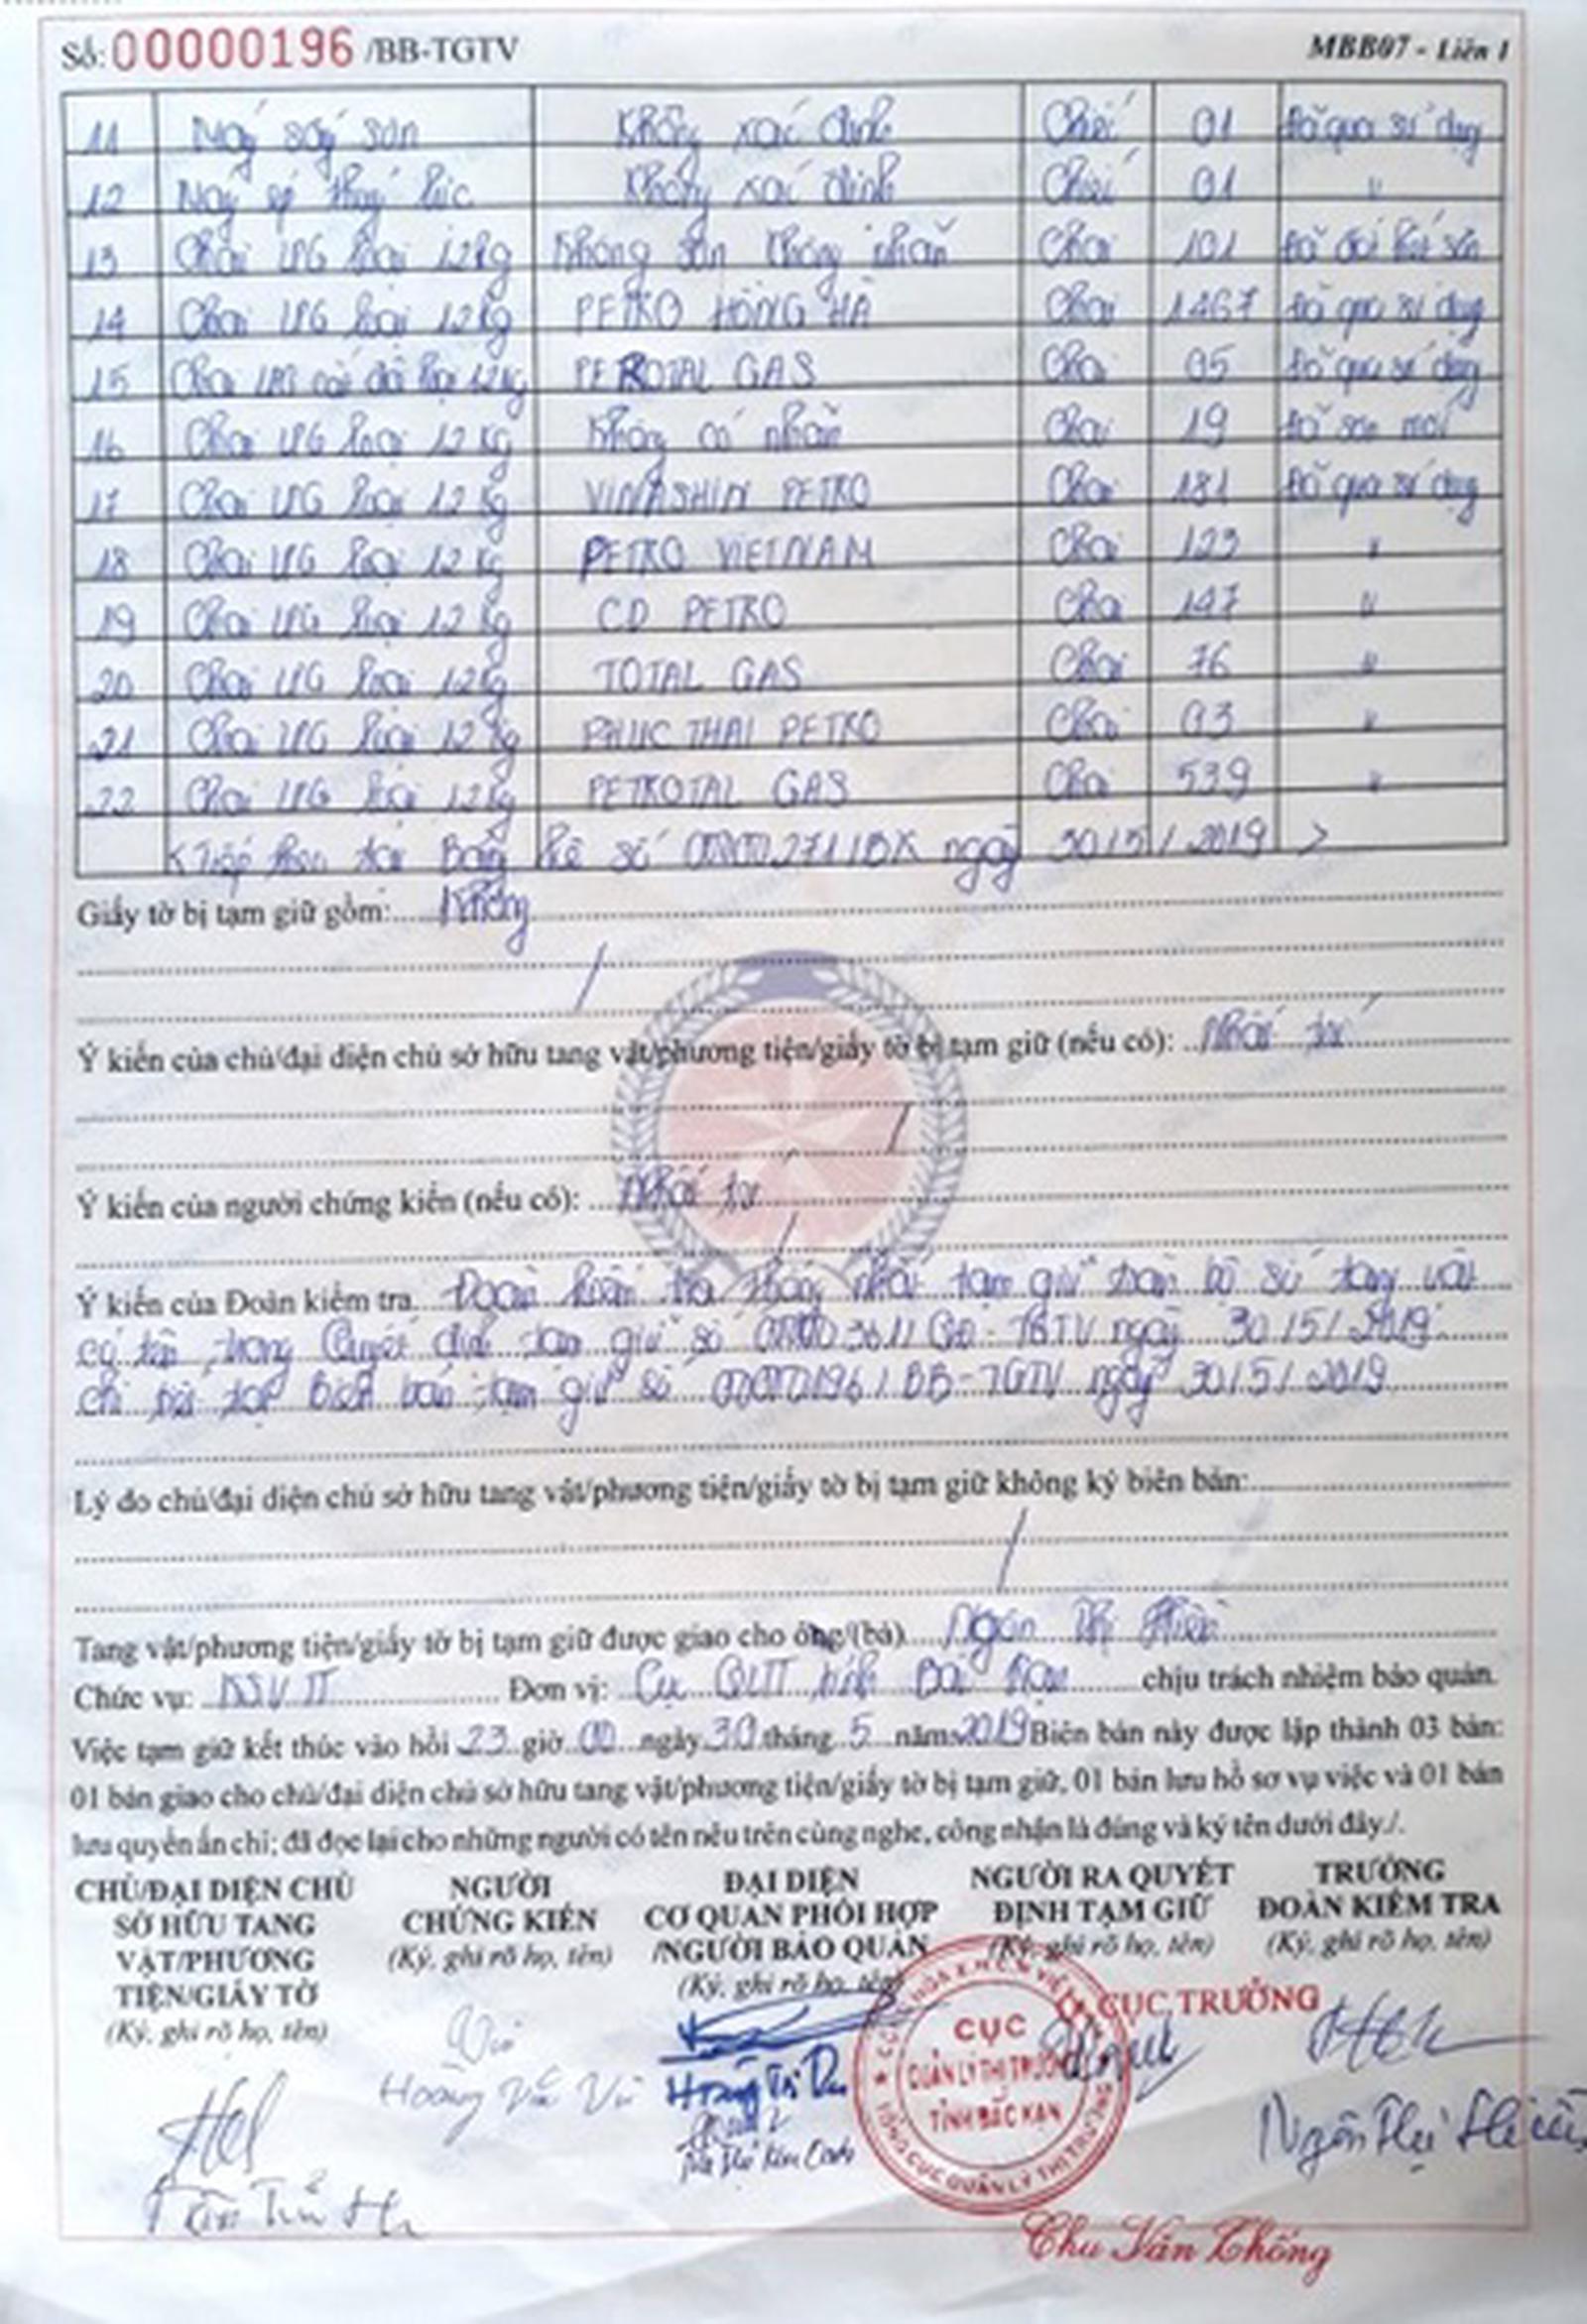 Số: 00000196 /BB-TGTV
MBB07 - Liên 1
11 Máy sấy sơn Không xác định Chiếc 01 Đã qua sử dụng
12 Máy thuỷ lực Không xác định Chiếc 01 "
13 Chai LPG loại 12kg Không sơn không nhãn Chai 101 Đã
14 Chai LPG loại 12kg PETRO HỒNG HÀ Chai 1467 Đã qua sử dụng
15 Chai LPG loại 12kg PETROTAL GAS Chai 05 Đã qua sử dụng
16 Chai LPG loại 12 kg Không có nhãn Chai 19 Đã sơn mới
17 Chai LPG loại 12 kg VINASHIN PETRO Chai 181 Đã qua sử dụng
18 Chai LPG loại 12 kg PETRO VIETNAM Chai 123 "
19 Chai LPG loại 12 kg CD PETRO Chai 147 "
20 Chai LPG loại 12kg TOTAL GAS Chai 76 "
21 Chai LPG loại 12 kg PHUC THAI PETRO Chai 03 "
22 Chai LPG loại 12kg PETROTAL GAS Chai 539 "
< Tiếp theo tại Bảng kê số 0000271/BK ngày 30/5/2019 >
Giấy tờ bị tạm giữ gồm: Không
Ý kiến của chủ/đại diện chủ sở hữu tang vật/phương tiện/giấy tờ bị tạm giữ (nếu có): Nhất trí
Ý kiến của người chứng kiến (nếu có): Nhất trí
Ý kiến của Đoàn kiểm tra Đoàn kiểm tra thống nhất tạm giữ toàn bộ số tang vật
có tên trong Quyết định tạm giữ số ngày 30/5/2019
tạm giữ số 00000196/BB-TGTV ngày 30/5/2019
Lý do chủ/đại diện chủ sở hữu tang vật/phương tiện/giấy tờ bị tạm giữ không ký biên bản:
Tang vật/phương tiện/giấy tờ bị tạm giữ được giao cho ông/(bà) Ngôn Thị Hiền
Chức vụ: KSVTT Đơn vị: Cục QLTT tỉnh Bắc Kạn chịu trách nhiệm bảo quản.
Việc tạm giữ kết thúc vào hồi 23 giờ 00 ngày 30 tháng 5 năm 2019 Biên bản này được lập thành 03 bản:
01 bản giao cho chủ/đại diện chủ sở hữu tang vật/phương tiện/giấy tờ bị tạm giữ, 01 bản lưu hồ sơ vụ việc và 01 bản
lưu quyển ấn chỉ; đã đọc lại cho những người có tên nêu trên cùng nghe, công nhận là đúng và ký tên dưới đây./.
CHỦ/ĐẠI DIỆN CHỦ
SỞ HỮU TANG
VẬT/PHƯƠNG
TIỆN/GIẤY TỜ
(Ký, ghi rõ họ, tên)
NGƯỜI
CHỨNG KIẾN
(Ký, ghi rõ họ, tên)
Hoàng Văn Vũ
ĐẠI DIỆN
CƠ QUAN PHỐI HỢP
/NGƯỜI BẢO QUẢN
(Ký, ghi rõ họ, tên)
NGƯỜI RA QUYẾT
ĐỊNH TẠM GIỮ
(Ký, ghi rõ họ, tên)
CỤC TRƯỞNG
CỤC
QUẢN LÝ THỊ TRƯỜNG
TỈNH BẮC KẠN
TỔNG CỤC QUẢN LÝ THỊ TRƯỜNG
Chu Văn Thống
TRƯỞNG
ĐOÀN KIỂM TRA
(Ký, ghi rõ họ, tên)